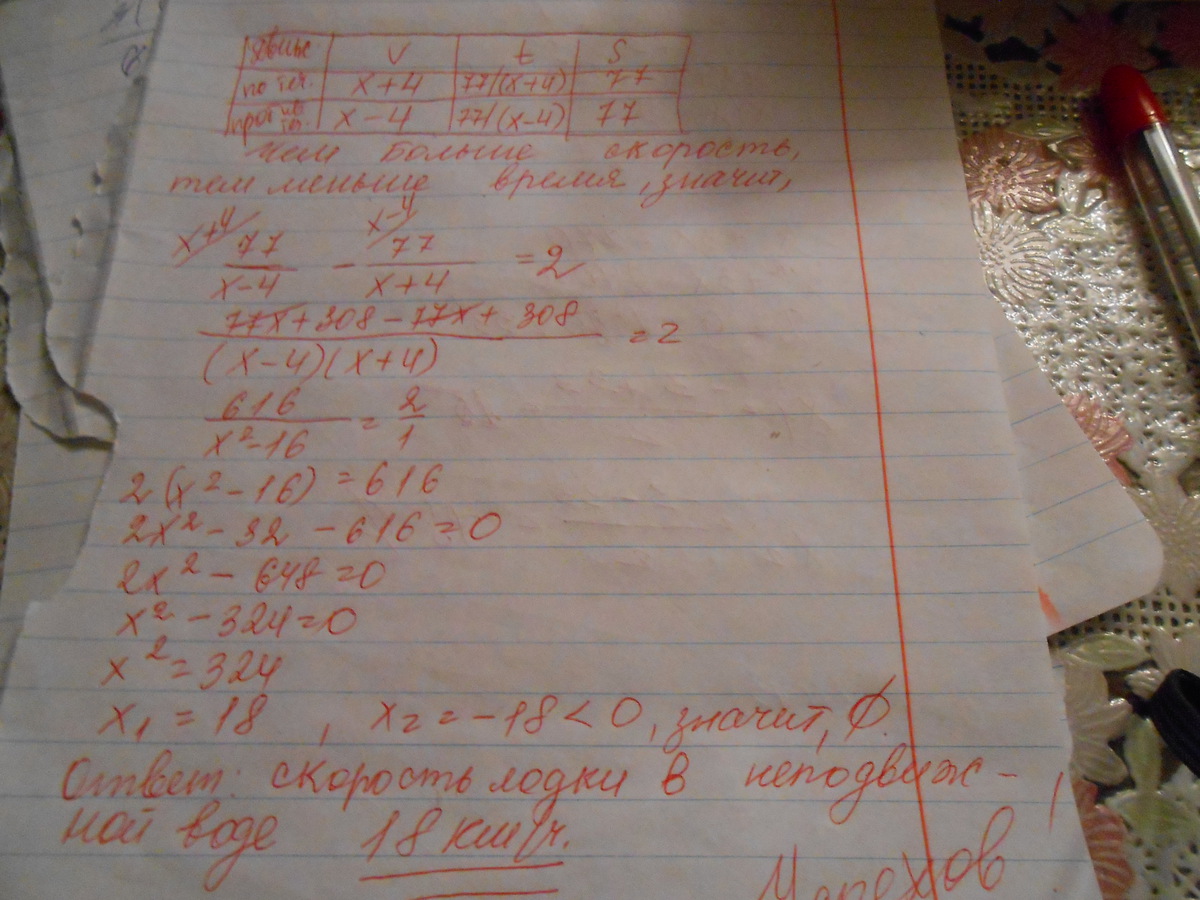 движ. V t S
по теч. x+4 77/(x+4) 77
против теч. x-4 77/(x-4) 77
Чем больше скорость,
тем меньше время, значит,
x+4 x-4
77/x-4 - 77/x+4 = 2
77x+308-77x+308/(x-4)(x+4) = 2
616/x²-16 = 2/1
2(x²-16) = 616
2x²-32-616=0
2x²-648=0
x²-324=0
x²=324
x₁=18, x₂=-18<0, значит, ∅.
Ответ: скорость лодки в неподвиж-
ной воде 18 км/ч.